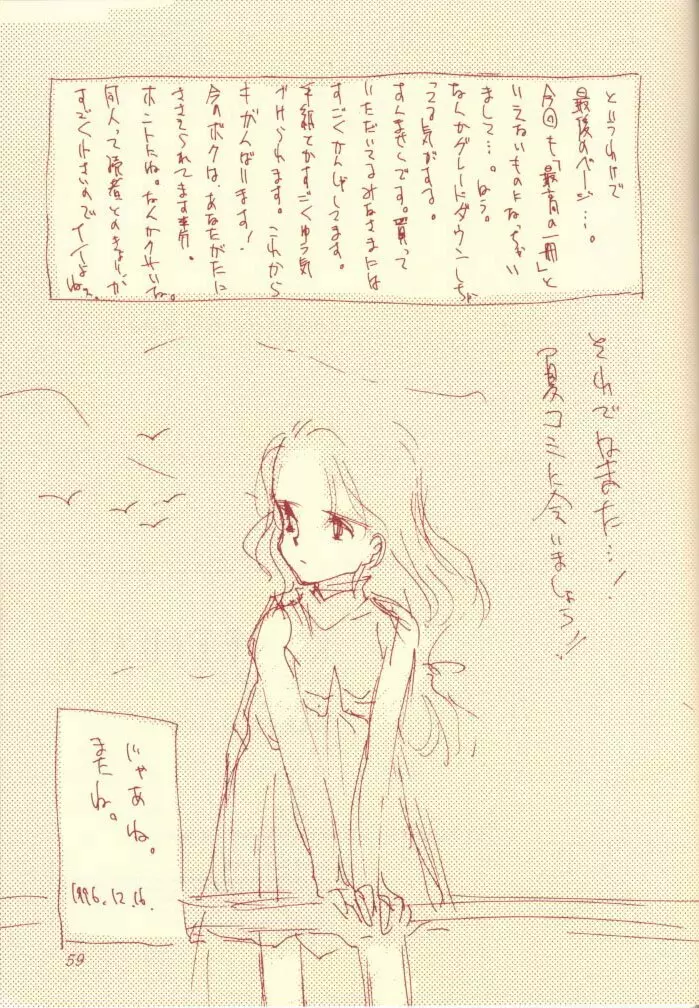 というわけで
最後のページ…。
今回も「最高の一冊」と
いえないものになっちゃい
まして…。はう。
なんかグレードダウンしちゃ
ってる気がする。
すんませんです。買って
いただいてるみなさまには
すごくかんしゃしてます。
手紙とかすごくゆう気
づけられます。これから
もがんばります!
今のボクは、あなたがたに
ささえられてます
ホントだね。なんかクサいな。
同人って読者とのきょりが
すごく小さいのでイイよねェ。
それではまた…!
夏コミに会いましょう!!
じゃあね。
またね。
1996.12.16.
59